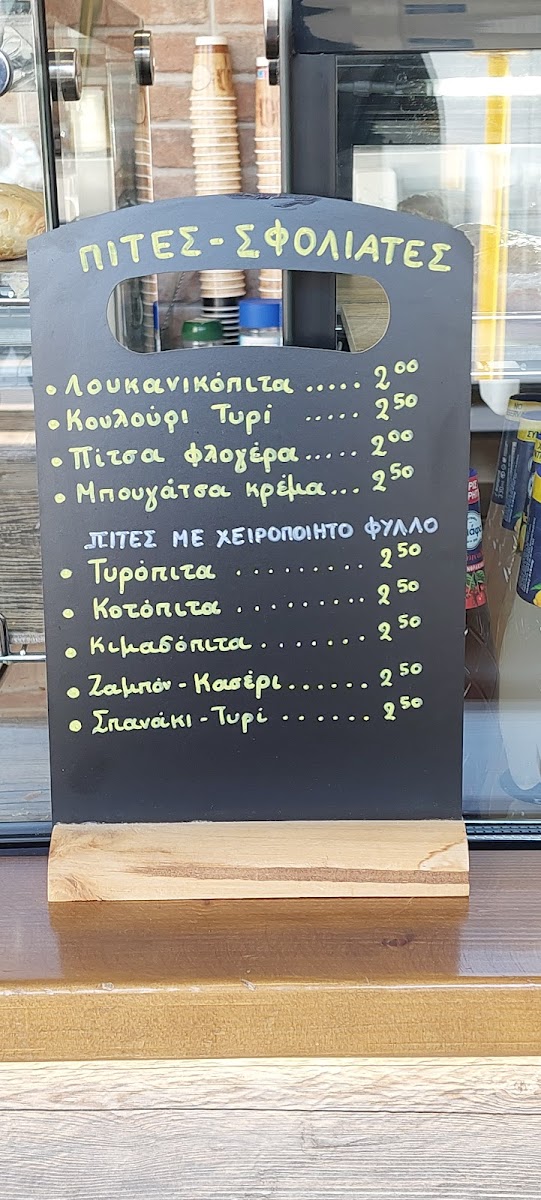 ΠΙΤΕΣ - ΣΦΟΛΙΑΤΕΣ
• Λουκανικόπιτα ..... 2⁰⁰
• Κουλούρι Τυρί ..... 2⁵⁰
• Πίτσα φλογέρα ..... 2⁰⁰
• Μπουγάτσα κρέμα ... 2⁵⁰
ΠΙΤΕΣ ΜΕ ΧΕΙΡΟΠΟΙΗΤΟ ΦΥΛΛΟ
• Τυρόπιτα ......... 2⁵⁰
• Κοτόπιτα ......... 2⁵⁰
• Κιμαδόπιτα ....... 2⁵⁰
• Ζαμπόν - Κασέρι ...... 2⁵⁰
• Σπανάκι - Τυρί ...... 2⁵⁰